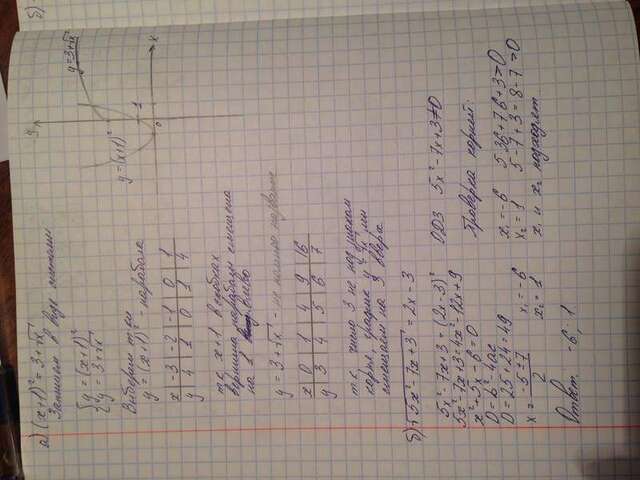 а) (x+1)² = 3+√x
Запишем в виде системы
{ y = (x+1)²
{ y = 3+√x
Выберем т-ки
y = (x+1)² - парабола
x -3 -2 -1 0 1
y 4 1 0 1 4
т.к. x+1 в скобках
вершина параболы смещена
на 1 влево
y = 3+√x - не помню название
x 0 1 4 9 16
y 3 4 5 6 7
т.к. число 3 не под знаком
корня, график y=√x мы
смещаем на 3 вверх
y
y=3+√x
y=(x+1)²
1
0
x
б) √5x²-7x+3 = 2x-3
5x²-7x+3 = (2x-3)²
ОДЗ 5x²-7x+3≠0
5x²-7x+3=4x²-12x+9
x²+5x-6=0
D = b²-4ac
D = 25+24=49
x = -5±7 / 2
x₁ = -6
x₂ = 1
Проверка корней:
x₁ = -6 5·36+7·6+3>0
x₂ = 1 5-7+3=8-7>0
x₁ и x₂ подходят
Ответ: -6; 1.
б)